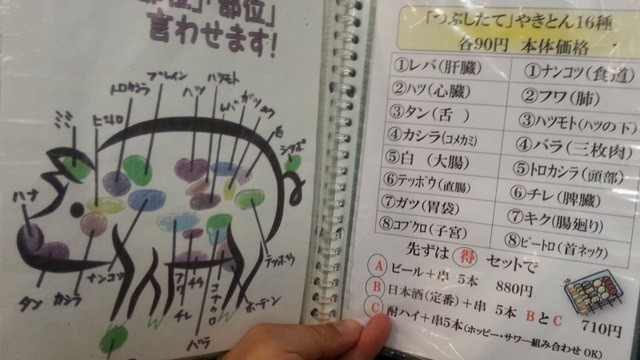 「部位」「部位」
言わせます!
トロカシラ
ブレイン
ハツ
ハツモト
レバ
ガツ
白
シッポ
ミミ
ヒモロ
ハナ
タン
カシラ
ナンコツ
フワ
チレ
コブクロ
バラ
テッポウ
ホーデン
「つぶしたて」やきとん16種
各90円 本体価格
①レバ(肝臓)
①ナンコツ(食道)
②ハツ(心臓)
②フワ(肺)
③タン(舌 )
③ハツモト(ハツの下)
④カシラ(コメカミ)
④バラ(三枚肉)
⑤白 (大腸)
⑤トロカシラ(頭部)
⑥テッポウ(直腸)
⑥チレ(脾臓)
⑦ガツ(胃袋)
⑦キク(腸廻り)
⑧コブクロ(子宮)
⑧ピートロ(首ネック)
先ずは 得 セットで
A ビール+串 5本 880円
B 日本酒(定番)+串 5本 BとC 710円
C 酎ハイ+串5本(ホッピー・サワー組み合わせOK)